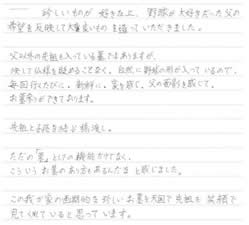 珍しいものが好きな上、野球が大好きだった父の
希望を反映して大変良いものを造っていただきました。
父以外の先祖も入っている墓ではありますが、
決して仏様を疎めることなく、自然に野球の形が入っているので、
毎回行くたびに、新鮮に、家を感じ、父の面影を感じて、
お墓参りができております。
先祖と子孫を結ぶ橋渡し。
ただの「墓」としての機能だけでなく、
こういうお墓のあり方もあるんだなと感じました。
この我が家の画期的な珍しいお墓を天国で先祖も笑顔で
見てくれていると思っています。